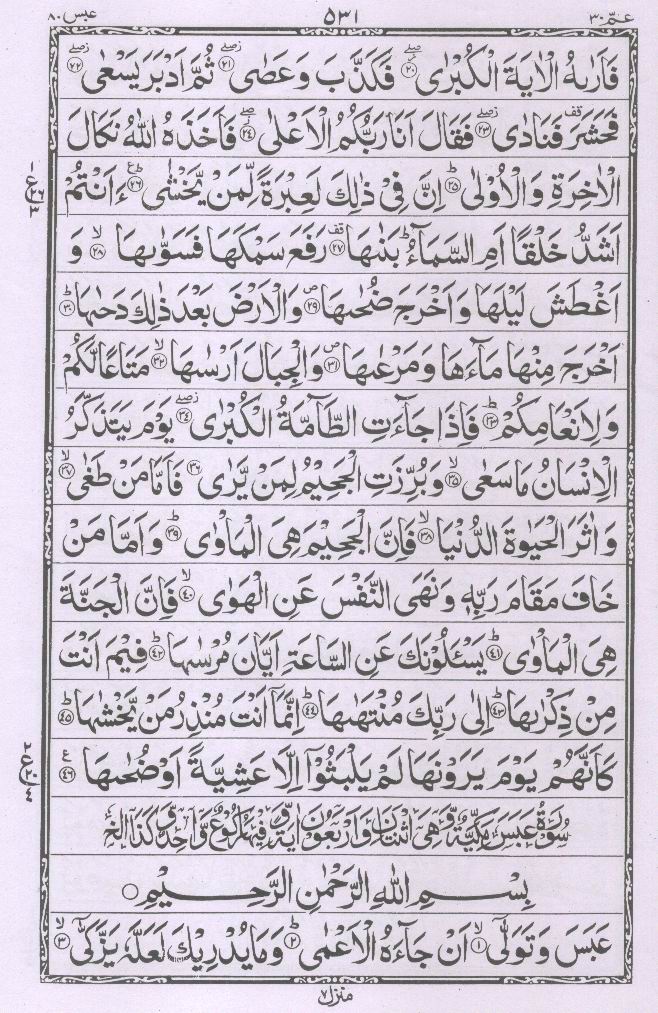 عـمّ ٣٠ ٥٣١ عبس ٨٠
فَاَرٰىهُ الْاٰيَةَ الْكُبْرٰى ۖ‏ ﴿۲۰﴾ فَكَذَّبَ وَعَصٰى ۖ‏ ﴿۲۱﴾ ثُمَّ اَدْبَرَ يَسْعٰى ۖ‏ ﴿۲۲﴾
فَحَشَرَ فَنَادٰى ۖ‏ ﴿۲۳﴾ فَقَالَ اَنَا رَبُّكُمُ الْاَعْلٰى ۖ‏ ﴿۲٤﴾ فَاَخَذَهُ اللّٰهُ نَكَالَ
الْاٰخِرَةِ وَالْاُوْلٰى ؕ‏ ﴿۲۵﴾ اِنَّ فِىْ ذٰلِكَ لَعِبْرَةً لِّمَنْ يَّخْشٰى ؕ‏ ﴿۲٦﴾ ءَاَنْتُمْ
اَشَدُّ خَلْقًا اَمِ السَّمَآءُ ؕ بَنٰٮهَا ‏ ﴿۲۷﴾ رَفَعَ سَمْكَهَا فَسَوّٰٮهَا ۙ‏ ﴿۲۸﴾ وَ
اَغْطَشَ لَيْلَهَا وَاَخْرَجَ ضُحٰٮهَا ‏ ﴿۲۹﴾ وَالْاَرْضَ بَعْدَ ذٰلِكَ دَحٰٮهَا ؕ‏ ﴿۳۰﴾
اَخْرَجَ مِنْهَا مَآءَهَا وَمَرْعٰٮهَا ‏ ﴿۳۱﴾ وَالْجِبَالَ اَرْسٰٮهَا ۙ‏ ﴿۳۲﴾ مَتَاعًا لَّكُمْ
وَلِاَنْعَامِكُمْ ؕ‏ ﴿۳۳﴾ فَاِذَا جَآءَتِ الطَّآمَّةُ الْكُبْرٰى ۖ‏ ﴿۳٤﴾ يَوْمَ يَتَذَكَّرُ
الْاِنْسَانُ مَا سَعٰى ۙ‏ ﴿۳۵﴾ وَبُرِّزَتِ الْجَحِيْمُ لِمَنْ يَّرٰى ‏ ﴿۳٦﴾ فَاَمَّا مَنْ طَغٰى ۙ‏ ﴿۳۷﴾
وَاٰثَرَ الْحَيٰوةَ الدُّنْيَا ۙ‏ ﴿۳۸﴾ فَاِنَّ الْجَحِيْمَ هِىَ الْمَاْوٰى ؕ‏ ﴿۳۹﴾ وَاَمَّا مَنْ
خَافَ مَقَامَ رَبِّهٖ وَنَهَى النَّفْسَ عَنِ الْهَوٰى ۙ‏ ﴿٤۰﴾ فَاِنَّ الْجَنَّةَ
هِىَ الْمَاْوٰى ؕ‏ ﴿٤۱﴾ يَسْـَٔلُوْنَكَ عَنِ السَّاعَةِ اَيَّانَ مُرْسٰٮهَا ؕ‏ ﴿٤۲﴾ فِيْمَ اَنْتَ
مِنْ ذِكْرٰٮهَا ؕ‏ ﴿٤۳﴾ اِلٰى رَبِّكَ مُنْتَهٰٮهَا ؕ‏ ﴿٤٤﴾ اِنَّمَآ اَنْتَ مُنْذِرُ مَنْ يَّخْشٰٮهَا ؕ‏ ﴿٤۵﴾
كَاَنَّهُمْ يَوْمَ يَرَوْنَهَا لَمْ يَلْبَثُوْۤا اِلَّا عَشِيَّةً اَوْ ضُحٰٮهَا ‏ ﴿٤٦﴾
سُوْرَةُ عَبَسَ مَكِّيَّةٌ وَّهِيَ اثْنَتَانِ وَاَرْبَعُوْنَ اٰيَةً وَّفِيْهَا رُكُوْعٌ وَّاحِدٌ
بِسْمِ اللّٰهِ الرَّحْمٰنِ الرَّحِيْمِ
عَبَسَ وَتَوَلّٰٓى ۙ‏ ﴿۱﴾ اَنْ جَآءَهُ الْاَعْمٰى ؕ‏ ﴿۲﴾ وَمَا يُدْرِيْكَ لَعَلَّهٗ يَزَّكّٰٓى ۙ‏ ﴿۳﴾
منزل ٧